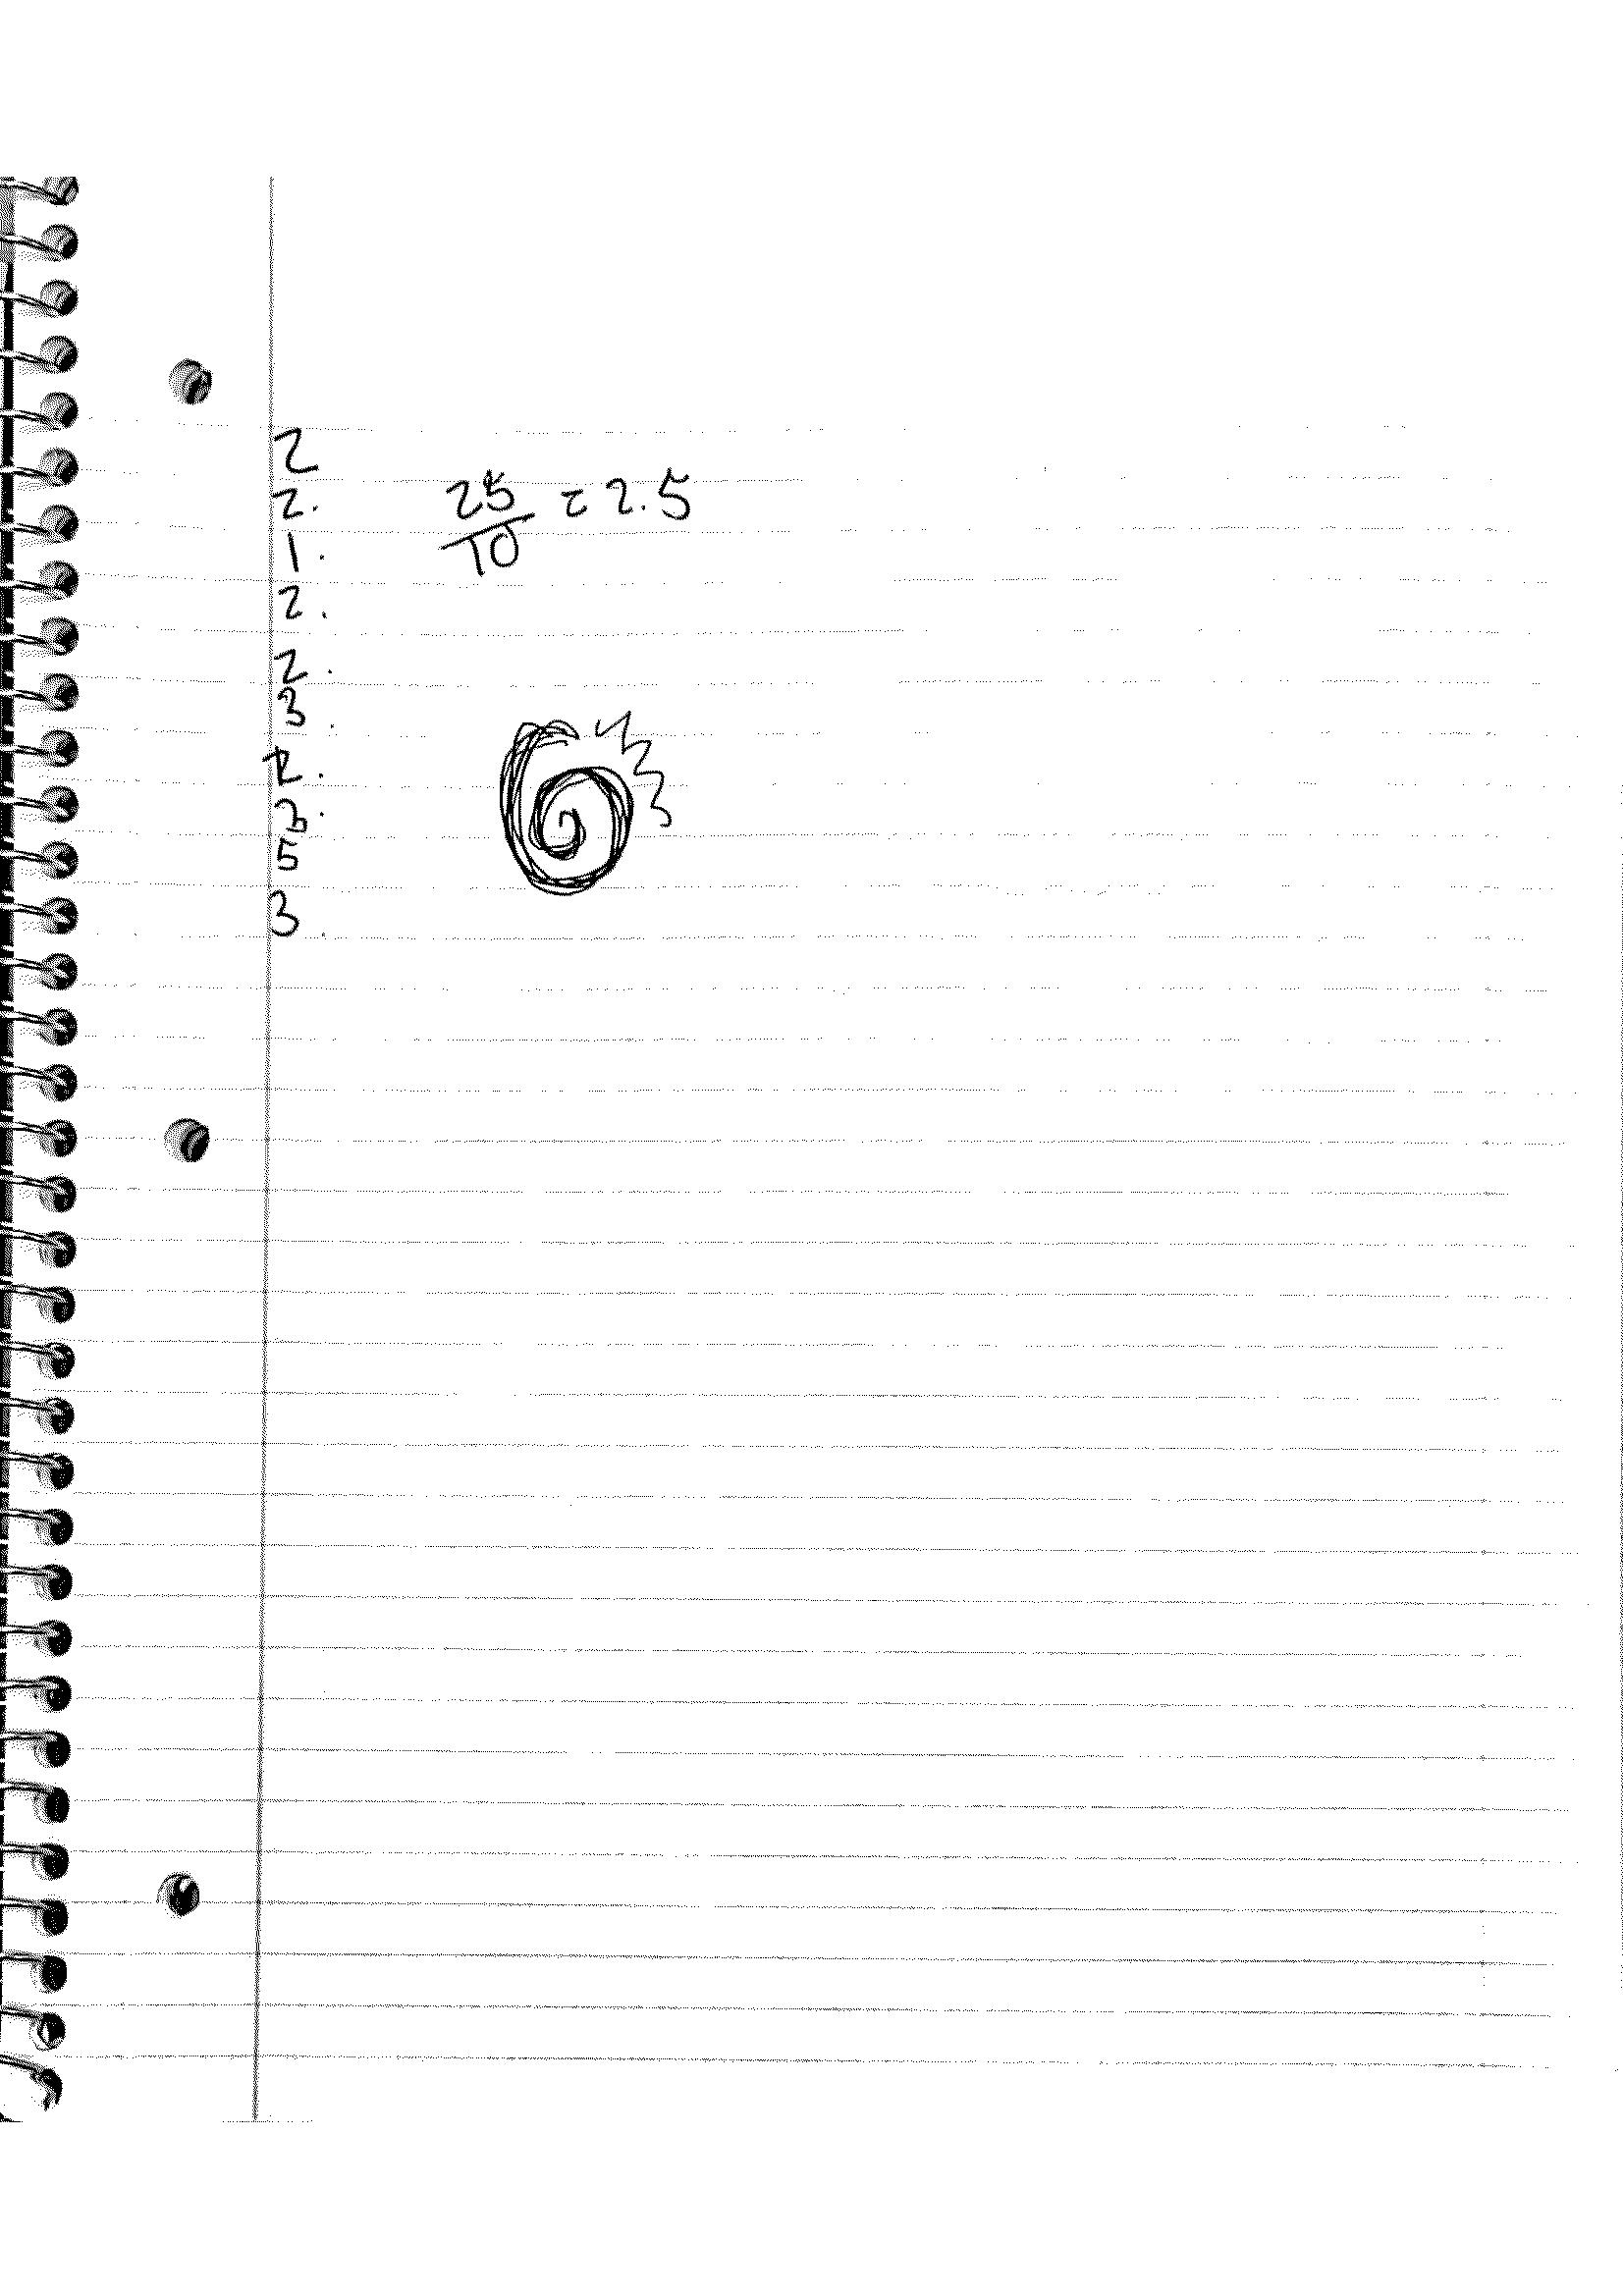 2
2.
1.
2.
2.
3.
2.
3.
5
3.
25/10 = 2.5